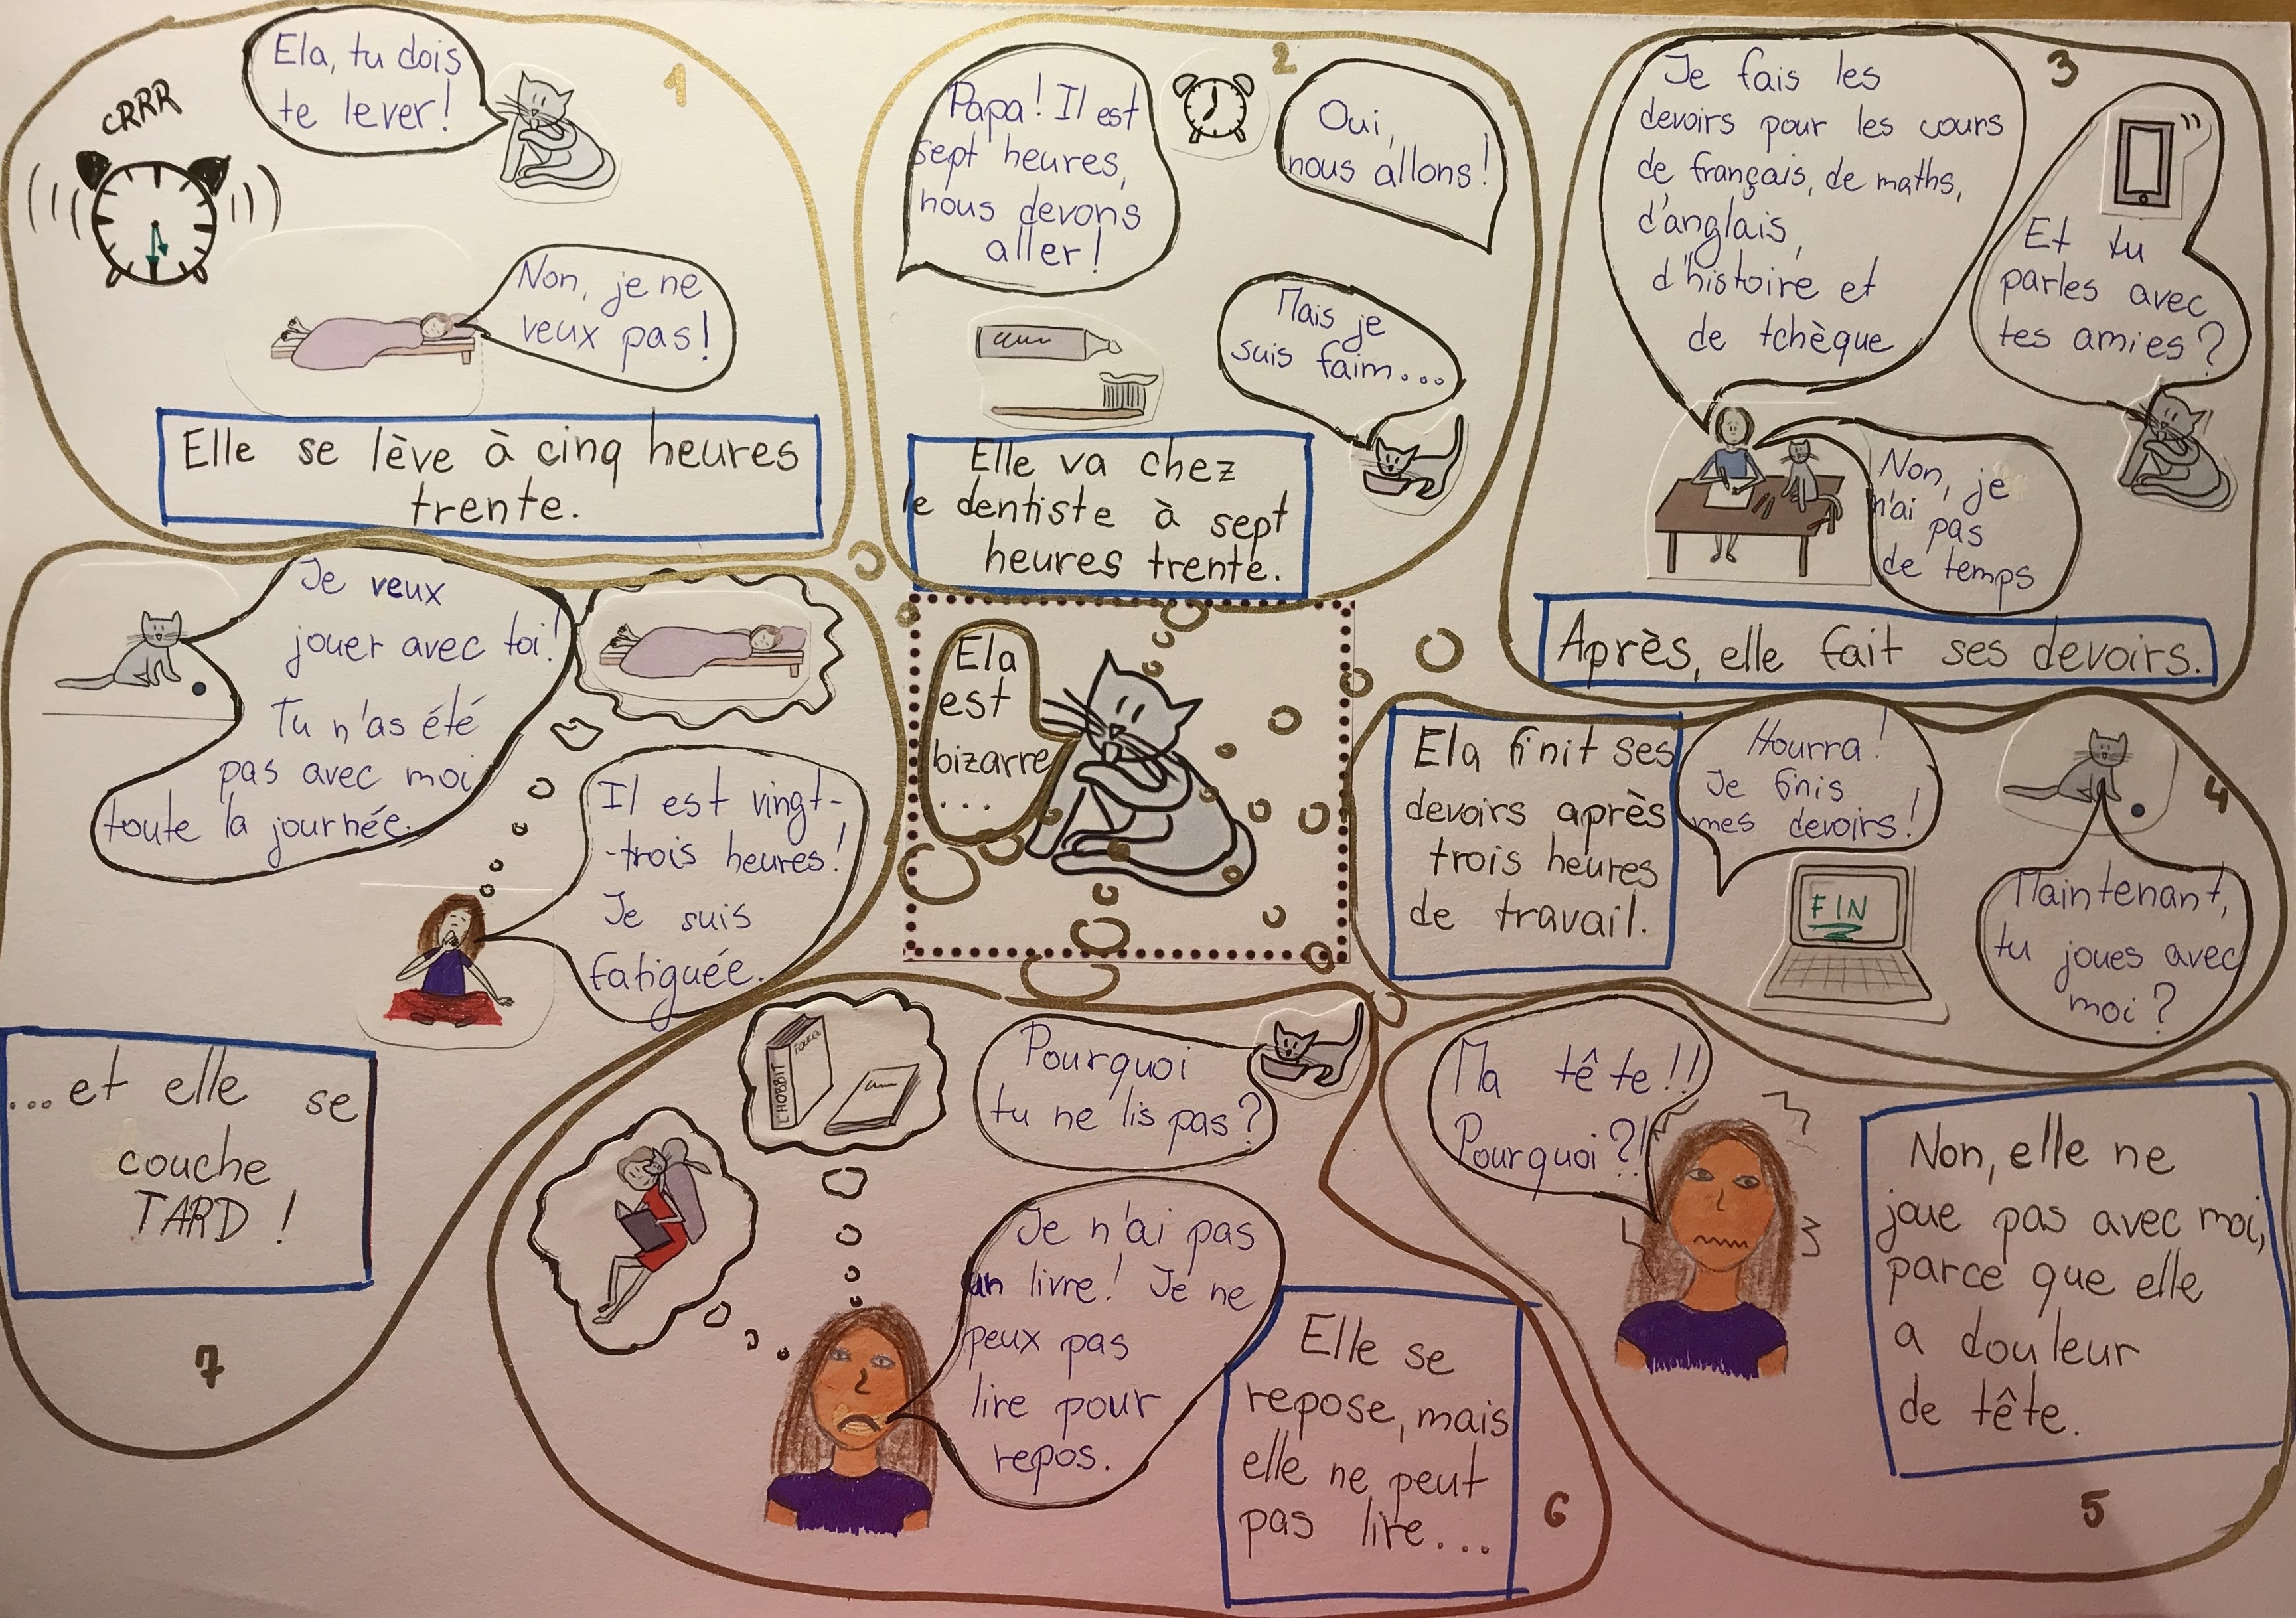 1
CRRR
Ela, tu dois
te lever!
Non, je ne
veux pas!
Elle se lève à cinq heures
trente.
2
Papa! Il est
sept heures,
nous devons
aller!
Oui,
nous allons!
Mais je
suis faim...
Elle va chez
le dentiste à sept
heures trente.
3
Je fais les
devoirs pour les cours
de français, de maths,
d'anglais,
d'histoire et
de tchèque
Et tu
parles avec
tes amies?
Non, je
n'ai pas
de temps
Après, elle fait ses devoirs.
Ela
est
bizarre
...
4
Ela finit ses
devoirs après
trois heures
de travail.
Hourra!
Je finis
mes devoirs!
FIN
Maintenant,
tu joues avec
moi?
5
Ma tête!!
Pourquoi?!
Non, elle ne
joue pas avec moi,
parce que elle
a douleur
de tête.
6
L'HOBBIT
Pourquoi
tu ne lis pas?
Je n'ai pas
un livre! Je ne
peux pas
lire pour
repos.
Elle se
repose, mais
elle ne peut
pas lire...
7
Je veux
jouer avec toi!
Tu n'as été
pas avec moi
toute la journée.
Il est vingt-
-trois heures!
Je suis
fatiguée.
...et elle se
couche
TARD!